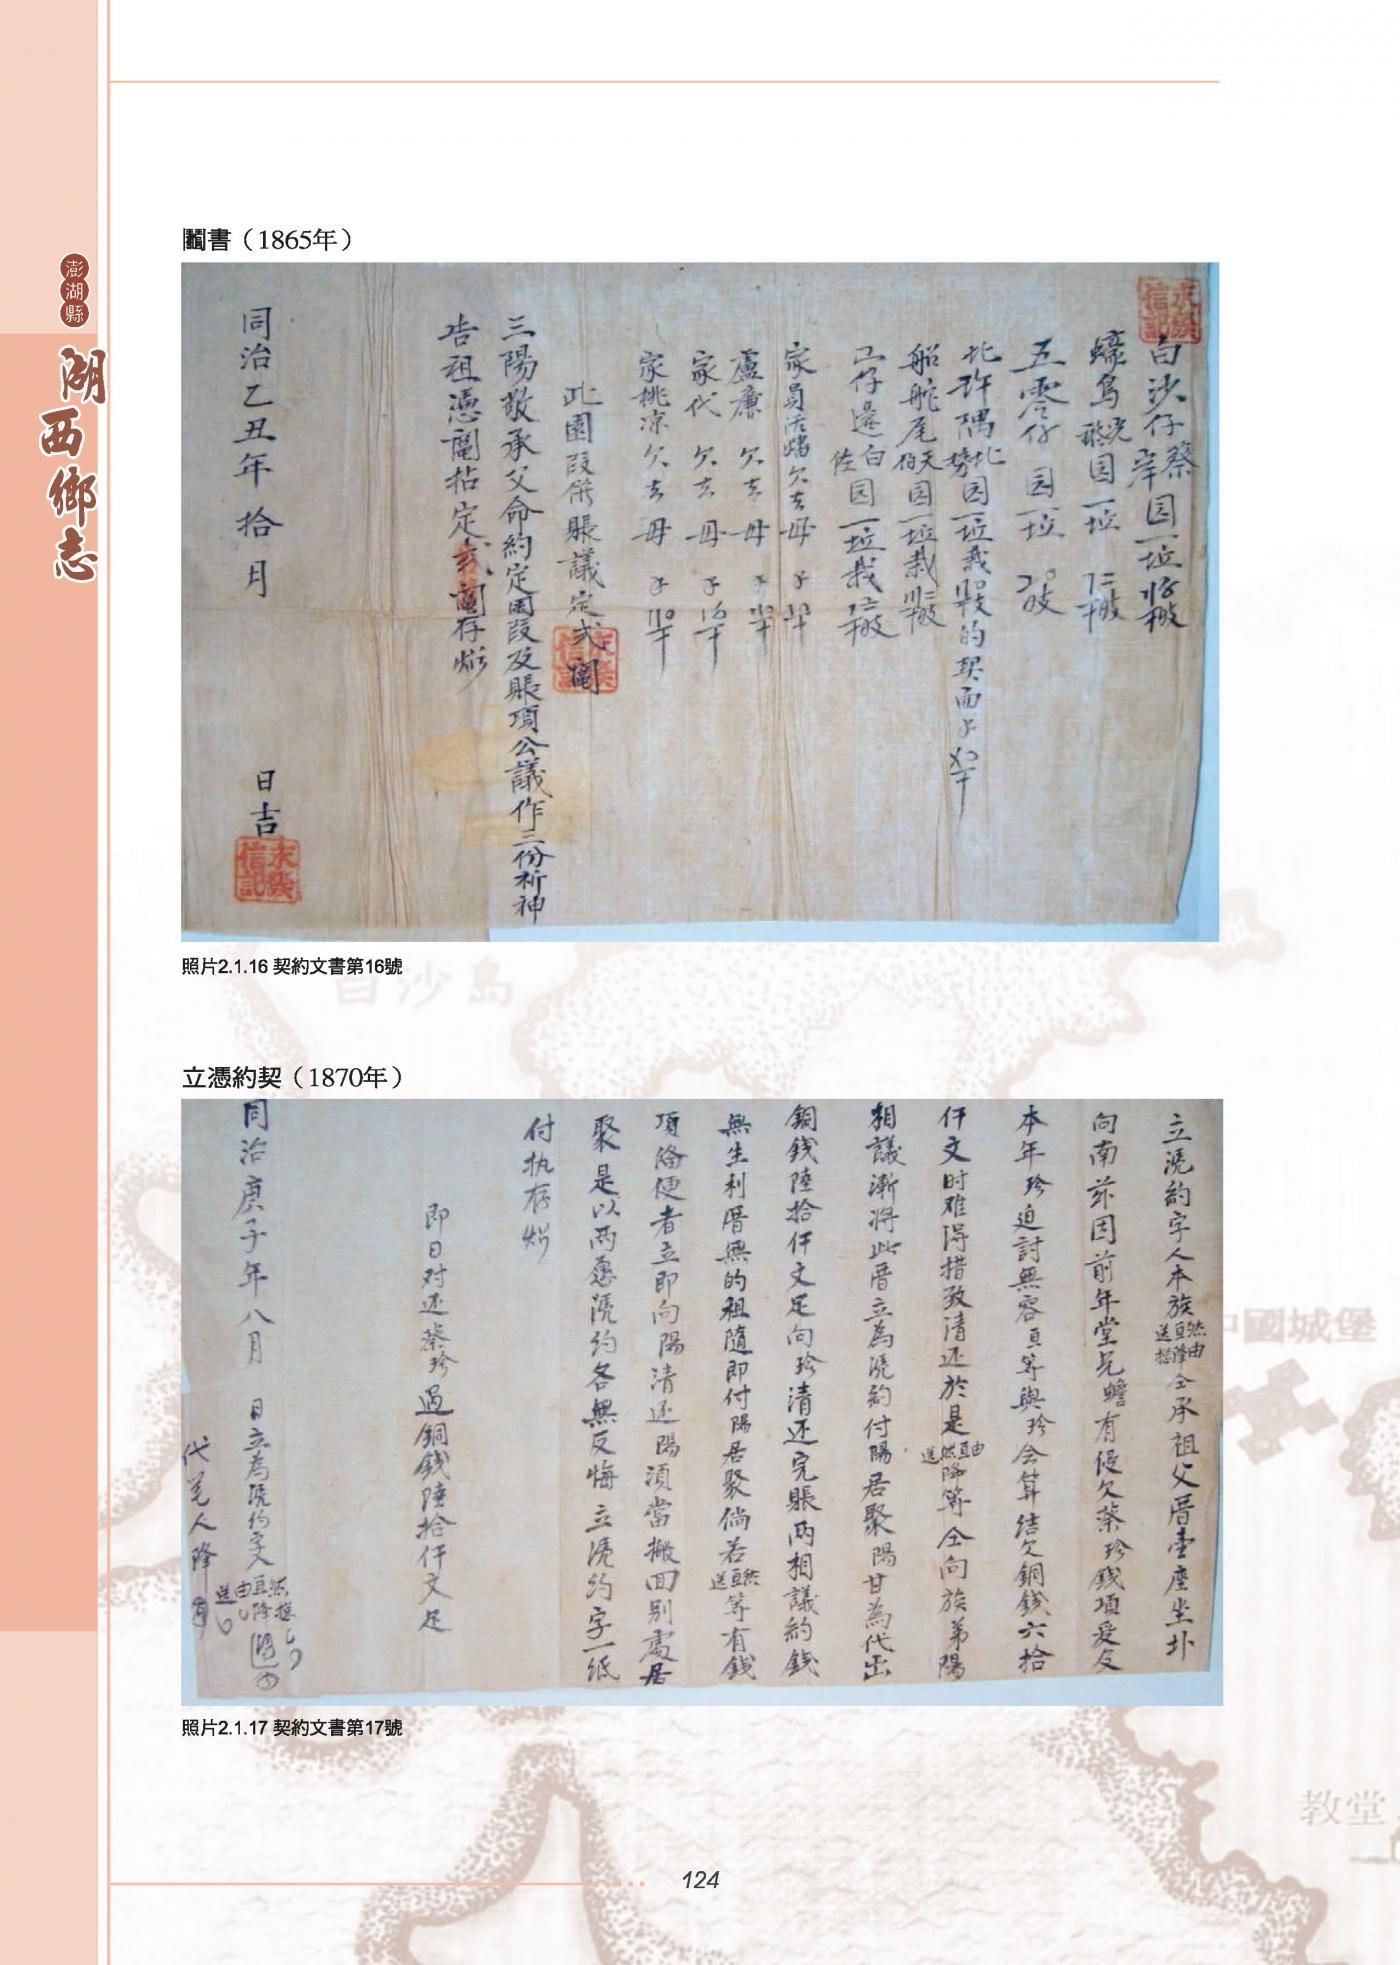 澎湖縣
湖西鄉志
鬮書（1865年）
永發信記
白沙仔蔡岸园一坵
蠔鳥 园一坵
五雫仔 园一坵
北許隅北勢园一坵栽 的契面
船舵尾天伯园一坵栽
山仔邊白佐园一坵栽
家員 欠去母 子
盧廉 欠去母 子
家代 欠去母 子
家桃凉 欠去母 子
此園段併賬議定弍鬮
三陽敬承父命約定園段及賬項公議作三份祈神
告祖憑鬮拈定弍鬮存炤
同治乙丑年拾月 日吉
永發信記
照片2.1.16 契約文書第16號
立憑約契（1870年）
立憑約字人本族 仝承祖父厝壹座坐圤
向南茲因前年堂兄蟾有侵欠蔡珍錢項爰及
本年珍迫討無容 等與珍会算結欠銅錢六拾
仟文时难得措致清还於是 等仝向族弟陽
相議漸將此厝立為憑約付陽居聚陽甘為代出
銅錢陸拾仟文足向珍清还完賬两相議約錢
無生利厝無的租隨即付陽居聚倘若 等有錢
項俻便者立即向陽清还陽湏當搬回别處居
聚是以两愿憑約各無反悔立憑約字一紙
付执存炤
即日对还蔡珍過銅錢陸拾仟文足
同治庚子年八月 日立為憑约字人
代笔人降
照片2.1.17 契約文書第17號
白沙島
中國城堡
教堂
124